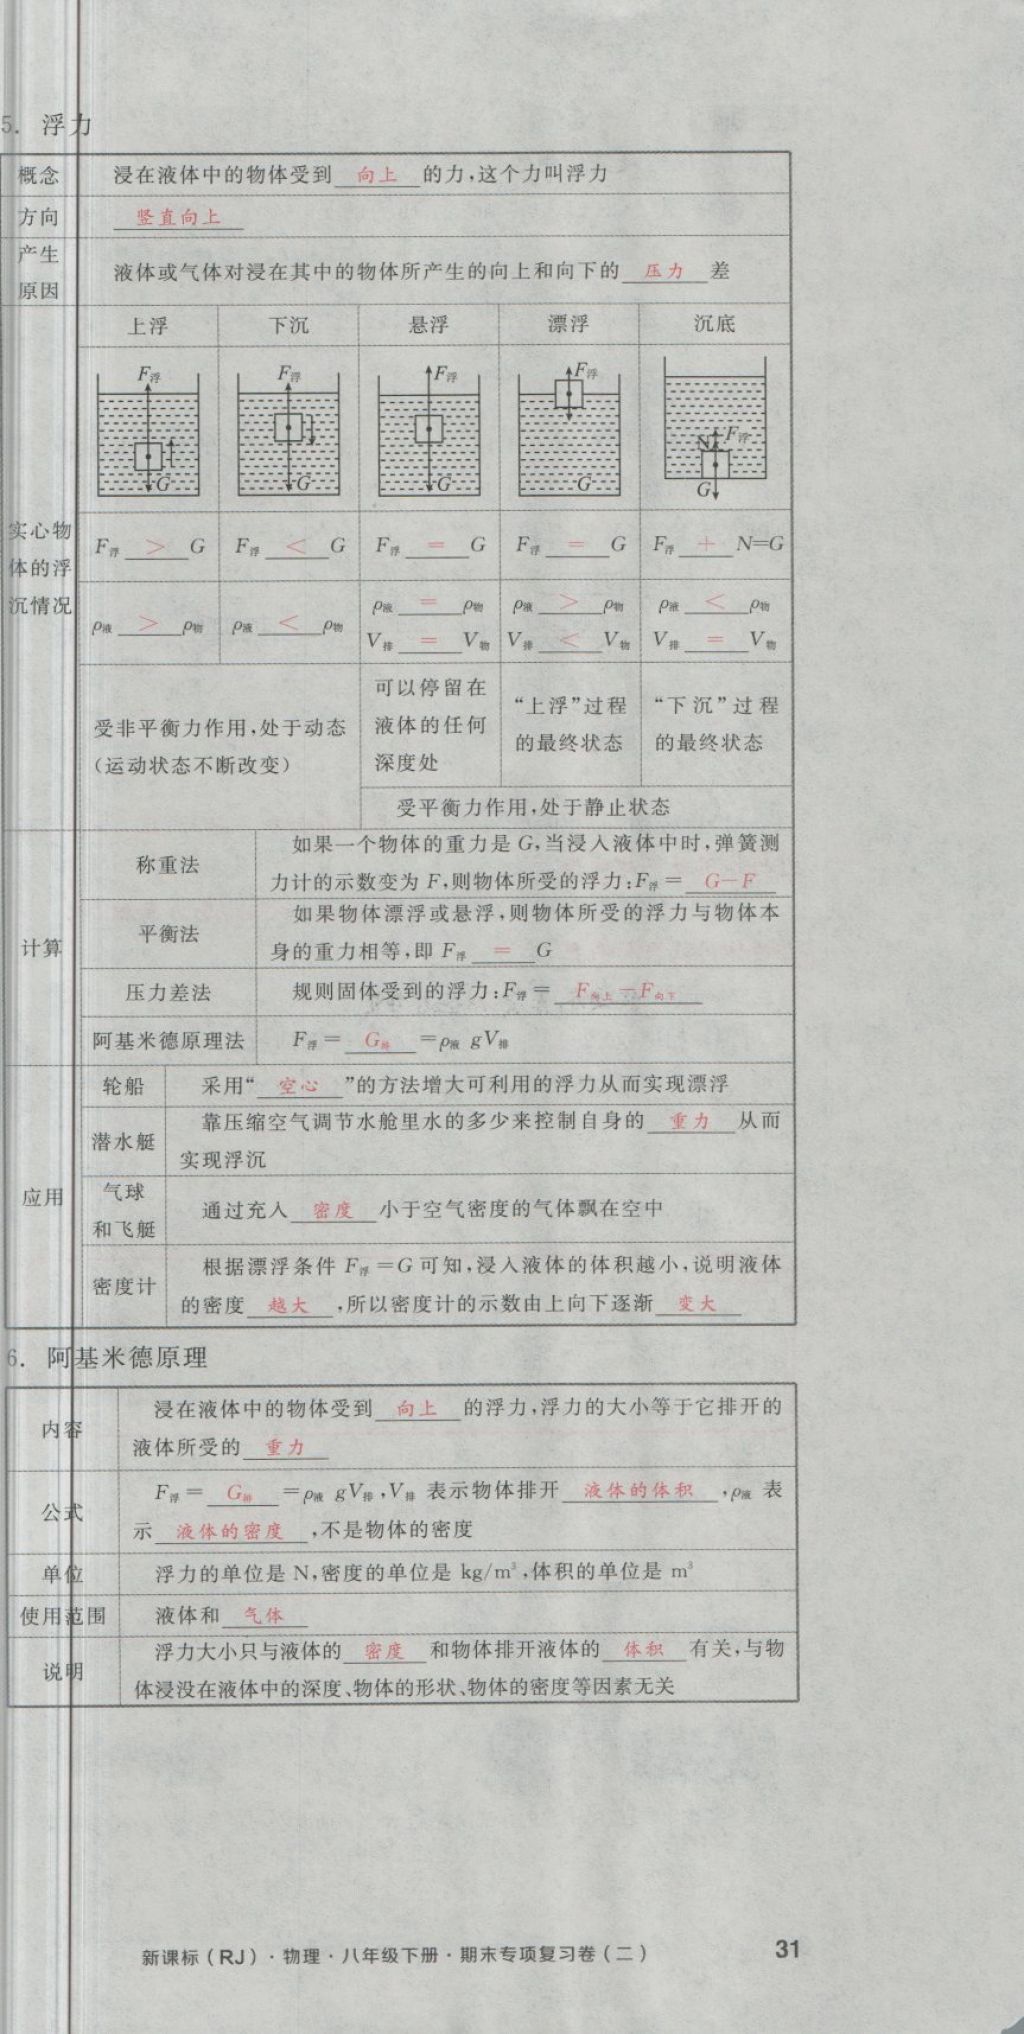 5. 浮力
概念 浸在液体中的物体受到 向上 的力,这个力叫浮力
方向 竖直向上
产生
原因
液体或气体对浸在其中的物体所产生的向上和向下的 压力 差
实心物
体的浮
沉情况
上浮 下沉 悬浮 漂浮 沉底
F浮 F浮 F浮 F浮 N F浮
G G G G G
F浮 > G F浮 < G F浮 = G F浮 = G F浮 + N=G
ρ液 > ρ物 ρ液 < ρ物 ρ液 = ρ物 ρ液 > ρ物 ρ液 < ρ物
V排 = V物 V排 < V物 V排 = V物
受非平衡力作用,处于动态
(运动状态不断改变)
可以停留在
液体的任何
深度处
“上浮”过程
的最终状态
“下沉”过程
的最终状态
受平衡力作用,处于静止状态
计算
称重法
如果一个物体的重力是 G,当浸入液体中时,弹簧测
力计的示数变为 F,则物体所受的浮力:F浮= G−F
平衡法
如果物体漂浮或悬浮,则物体所受的浮力与物体本
身的重力相等,即 F浮 = G
压力差法 规则固体受到的浮力:F浮= F向上−F向下
阿基米德原理法 F浮= G排 =ρ液 gV排
应用
轮船 采用“ 空心 ”的方法增大可利用的浮力从而实现漂浮
潜水艇
靠压缩空气调节水舱里水的多少来控制自身的 重力 从而
实现浮沉
气球
和飞艇
通过充入 密度 小于空气密度的气体飘在空中
密度计
根据漂浮条件 F浮=G 可知,浸入液体的体积越小,说明液体
的密度 越大 ,所以密度计的示数由上向下逐渐 变大
6. 阿基米德原理
内容
浸在液体中的物体受到 向上 的浮力,浮力的大小等于它排开的
液体所受的 重力
公式
F浮= G排 =ρ液 gV排,V排 表示物体排开 液体的体积 ,ρ液 表
示 液体的密度 ,不是物体的密度
单位 浮力的单位是 N,密度的单位是 kg/m³,体积的单位是 m³
使用范围 液体和 气体
说明
浮力大小只与液体的 密度 和物体排开液体的 体积 有关,与物
体浸没在液体中的深度、物体的形状、物体的密度等因素无关
新课标(RJ)·物理·八年级下册·期末专项复习卷(二) 31